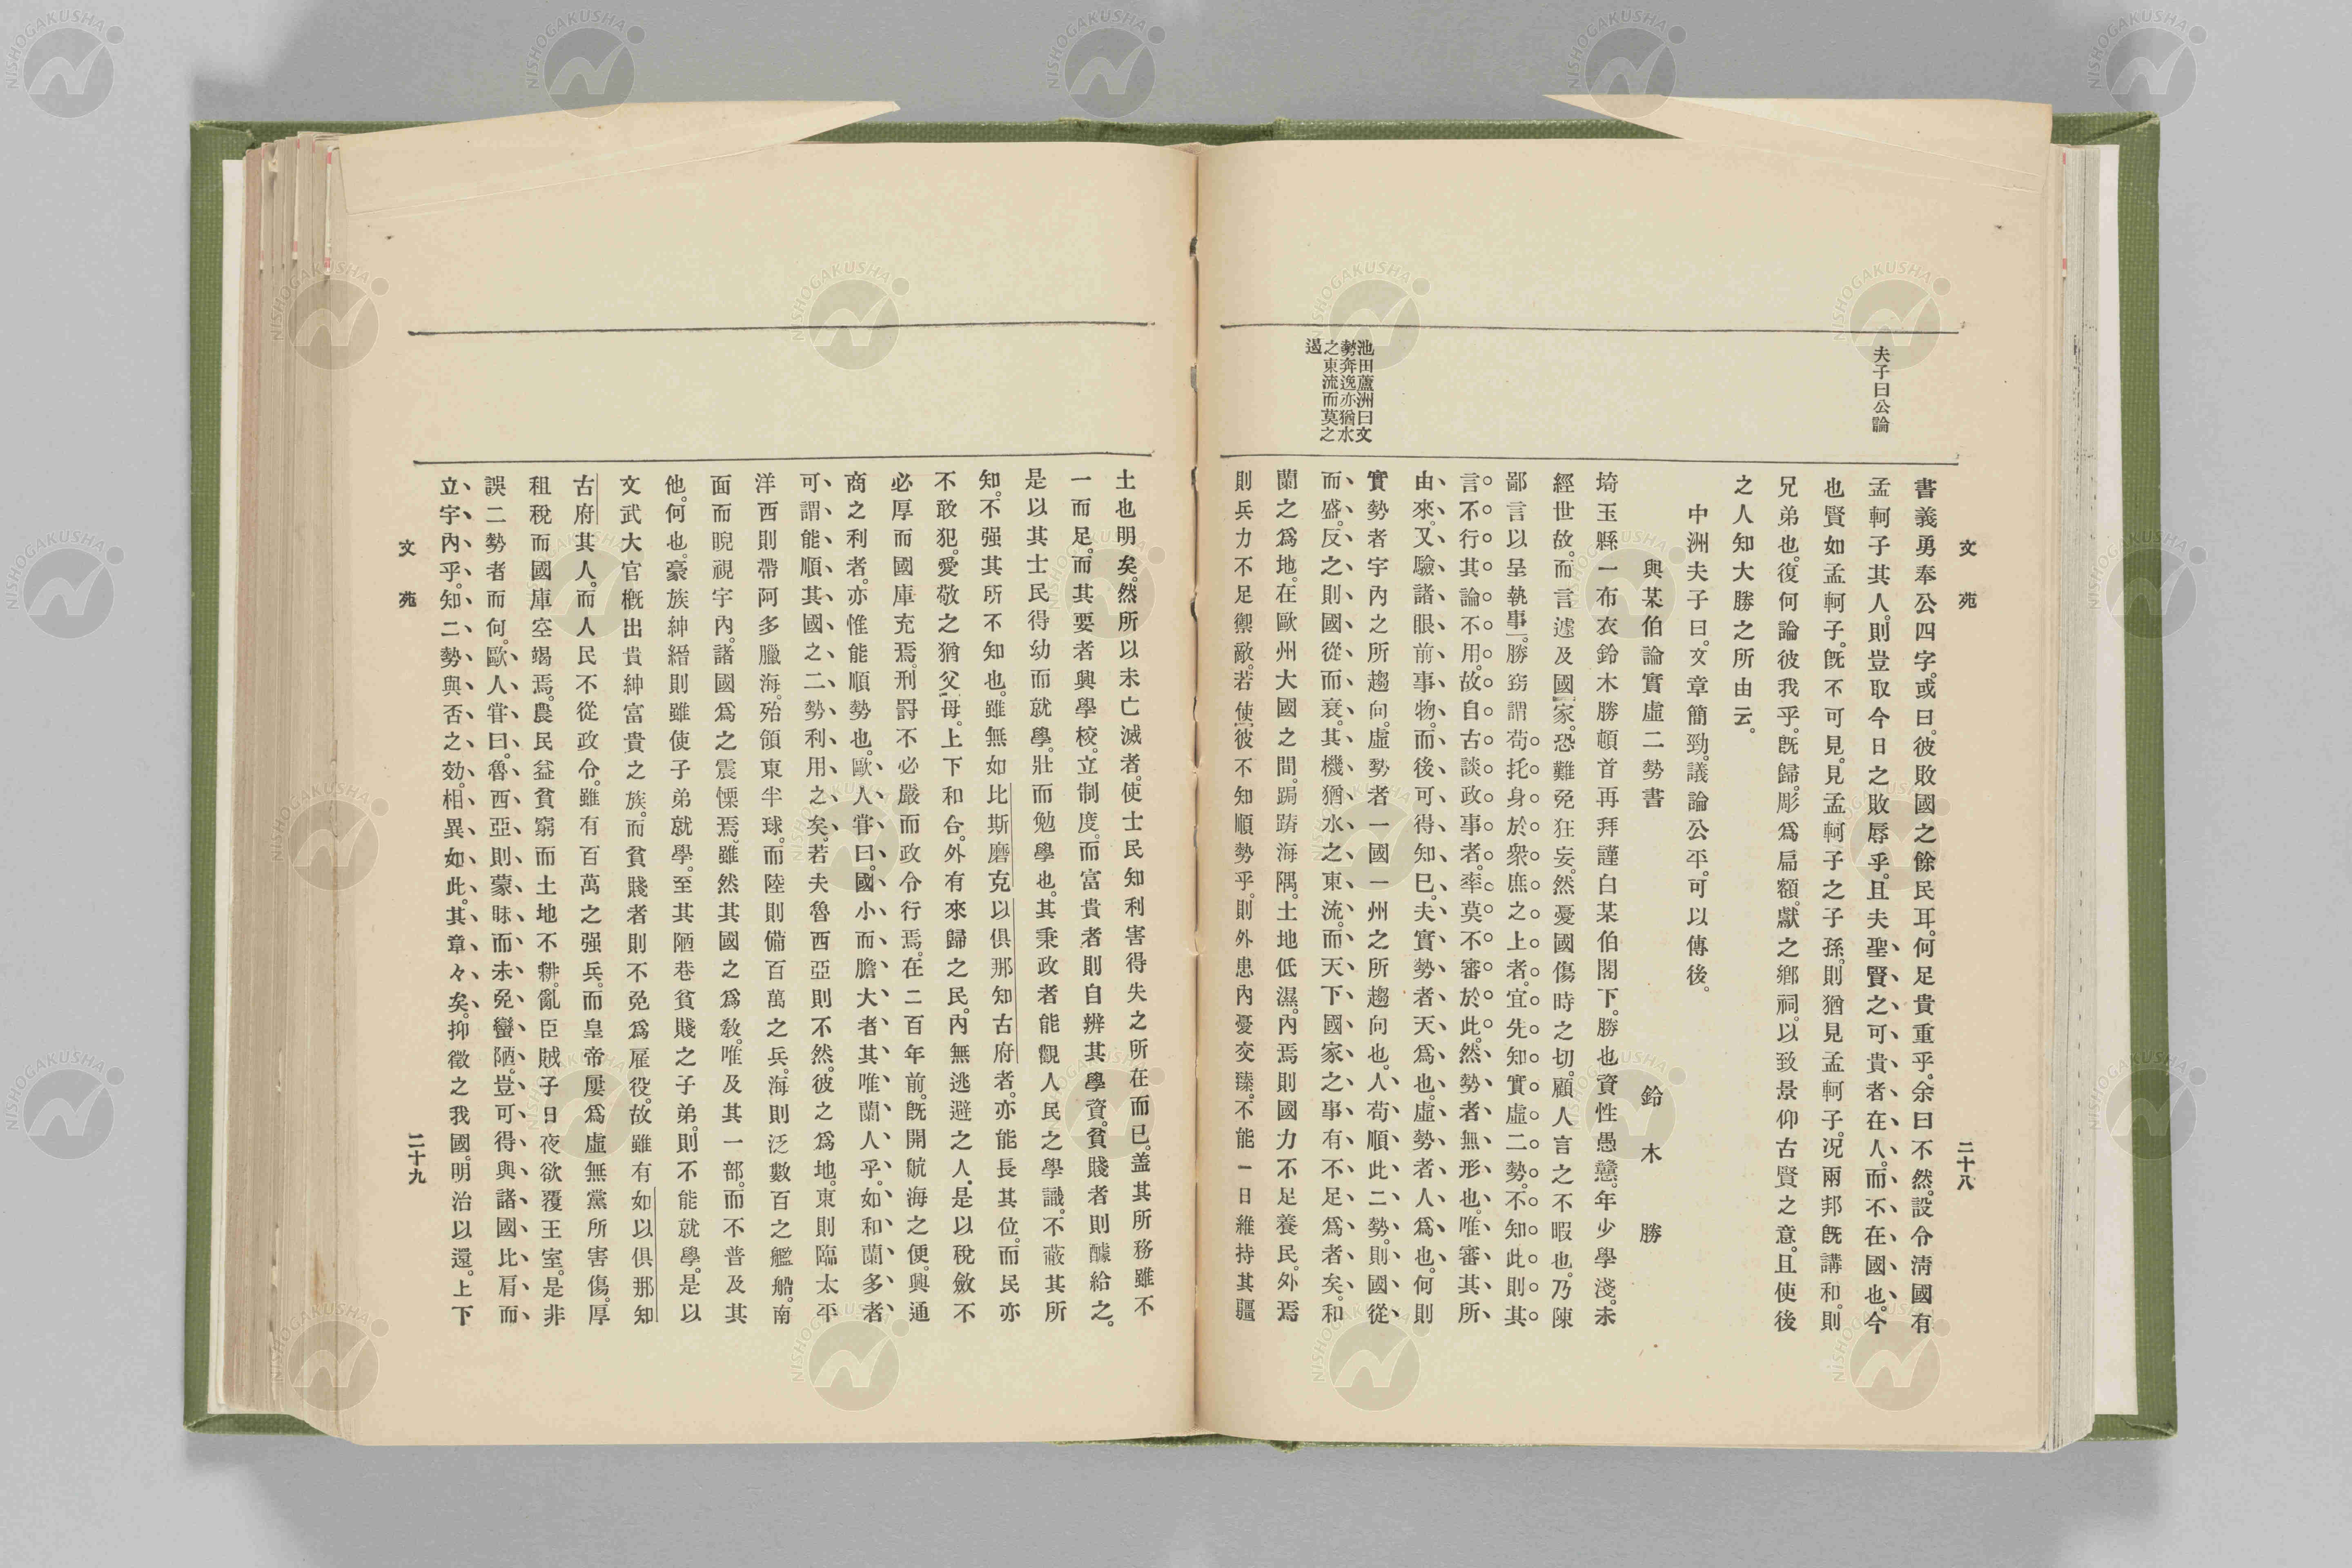 文苑
二十八
夫子曰公論
書義勇奉公四字。或曰。彼敗國之餘民耳。何足貴重乎。余曰不然。設令清國有
孟軻子其人。則豈取今日之敗辱乎。且夫聖賢之可貴者在人。而不在國也。今
也賢如孟軻子。旣不可見。見孟軻子之子孫。則猶見孟軻子。况兩邦旣講和。則
兄弟也。復何論彼我乎。旣歸。彫爲扁額。獻之鄕祠。以致景仰古賢之意。且使後
之人知大勝之所由云。
中洲夫子曰。文章簡勁。議論公平。可以傳後。
與某伯論實虛二勢書
鈴木勝
埼玉縣一布衣鈴木勝頓首再拜謹白某伯閣下。勝也資性愚戇。年少學淺。未
經世故。而言遽及國家。恐難免狂妄。然憂國傷時之切。顧人言之不暇也。乃陳
鄙言以呈執事。勝窃謂苟托身於衆庶之上者。宜先知實虛二勢。不知此則其
言不行其論不用。故自古談政事者。率莫不審於此。然勢者無形也。唯審其所
由來。又驗諸眼前事物。而後可得知已。夫實勢者天爲也。虛勢者人爲也。何則
池田蘆洲曰文
勢奔逸亦猶水
之東流而莫之
遏
實勢者宇內之所趨向。虛勢者一國一州之所趨向也。人苟順此二勢。則國從
而盛。反之則國從而衰。其機猶水之東流。而天下國家之事有不足爲者矣。和
蘭之爲地。在歐州大國之間。跼蹐海隅。土地低濕。內焉則國力不足養民。外焉
則兵力不足禦敵。若使彼不知順勢乎。則外患內憂交臻。不能一日維持其疆
土也明矣。然所以未亡滅者。使士民知利害得失之所在而已。盖其所務雖不
一而足。而其要者興學校。立制度。而富貴者則自辨其學資。貧賤者則醵給之。
是以其士民得幼而就學。壯而勉學也。其秉政者能觀人民之學識。不蔽其所
知。不强其所不知也。雖無如比斯磨克以俱那知古府者。亦能長其位。而民亦
不敢犯。愛敬之猶父母。上下和合。外有來歸之民。內無逃避之人。是以稅斂不
必厚而國庫充焉。刑罸不必嚴而政令行焉。在二百年前。旣開航海之便。興通
商之利者。亦惟能順勢也。歐人甞曰。國小而膽大者其唯蘭人乎。如和蘭多者
可謂能順其國之二勢利用之矣。若夫魯西亞則不然。彼之爲地。東則臨太平
洋西則帶阿多臘海。殆領東半球。而陸則備百萬之兵。海則泛數百之艦船。南
面而睨視宇內。諸國爲之震慄焉。雖然其國之爲敎。唯及其一部。而不普及其
他。何也。豪族紳縉則雖使子弟就學。至其陋巷貧賤之子弟。則不能就學。是以
文武大官槪出貴紳富貴之族。而貧賤者則不免爲雇役。故雖有如以俱那知
古府其人。而人民不從政令。雖有百萬之强兵。而皇帝屢爲虛無黨所害傷。厚
租稅而國庫空竭焉。農民益貧窮而土地不耕。亂臣賊子日夜欲覆王室。是非
誤二勢者而何。歐人甞曰。魯西亞則蒙昧而未免蠻陋。豈可得與諸國比肩而
立宇內乎。知二勢與否之効。相異如此。其章々矣。抑徵之我國。明治以還。上下
文苑
二十九